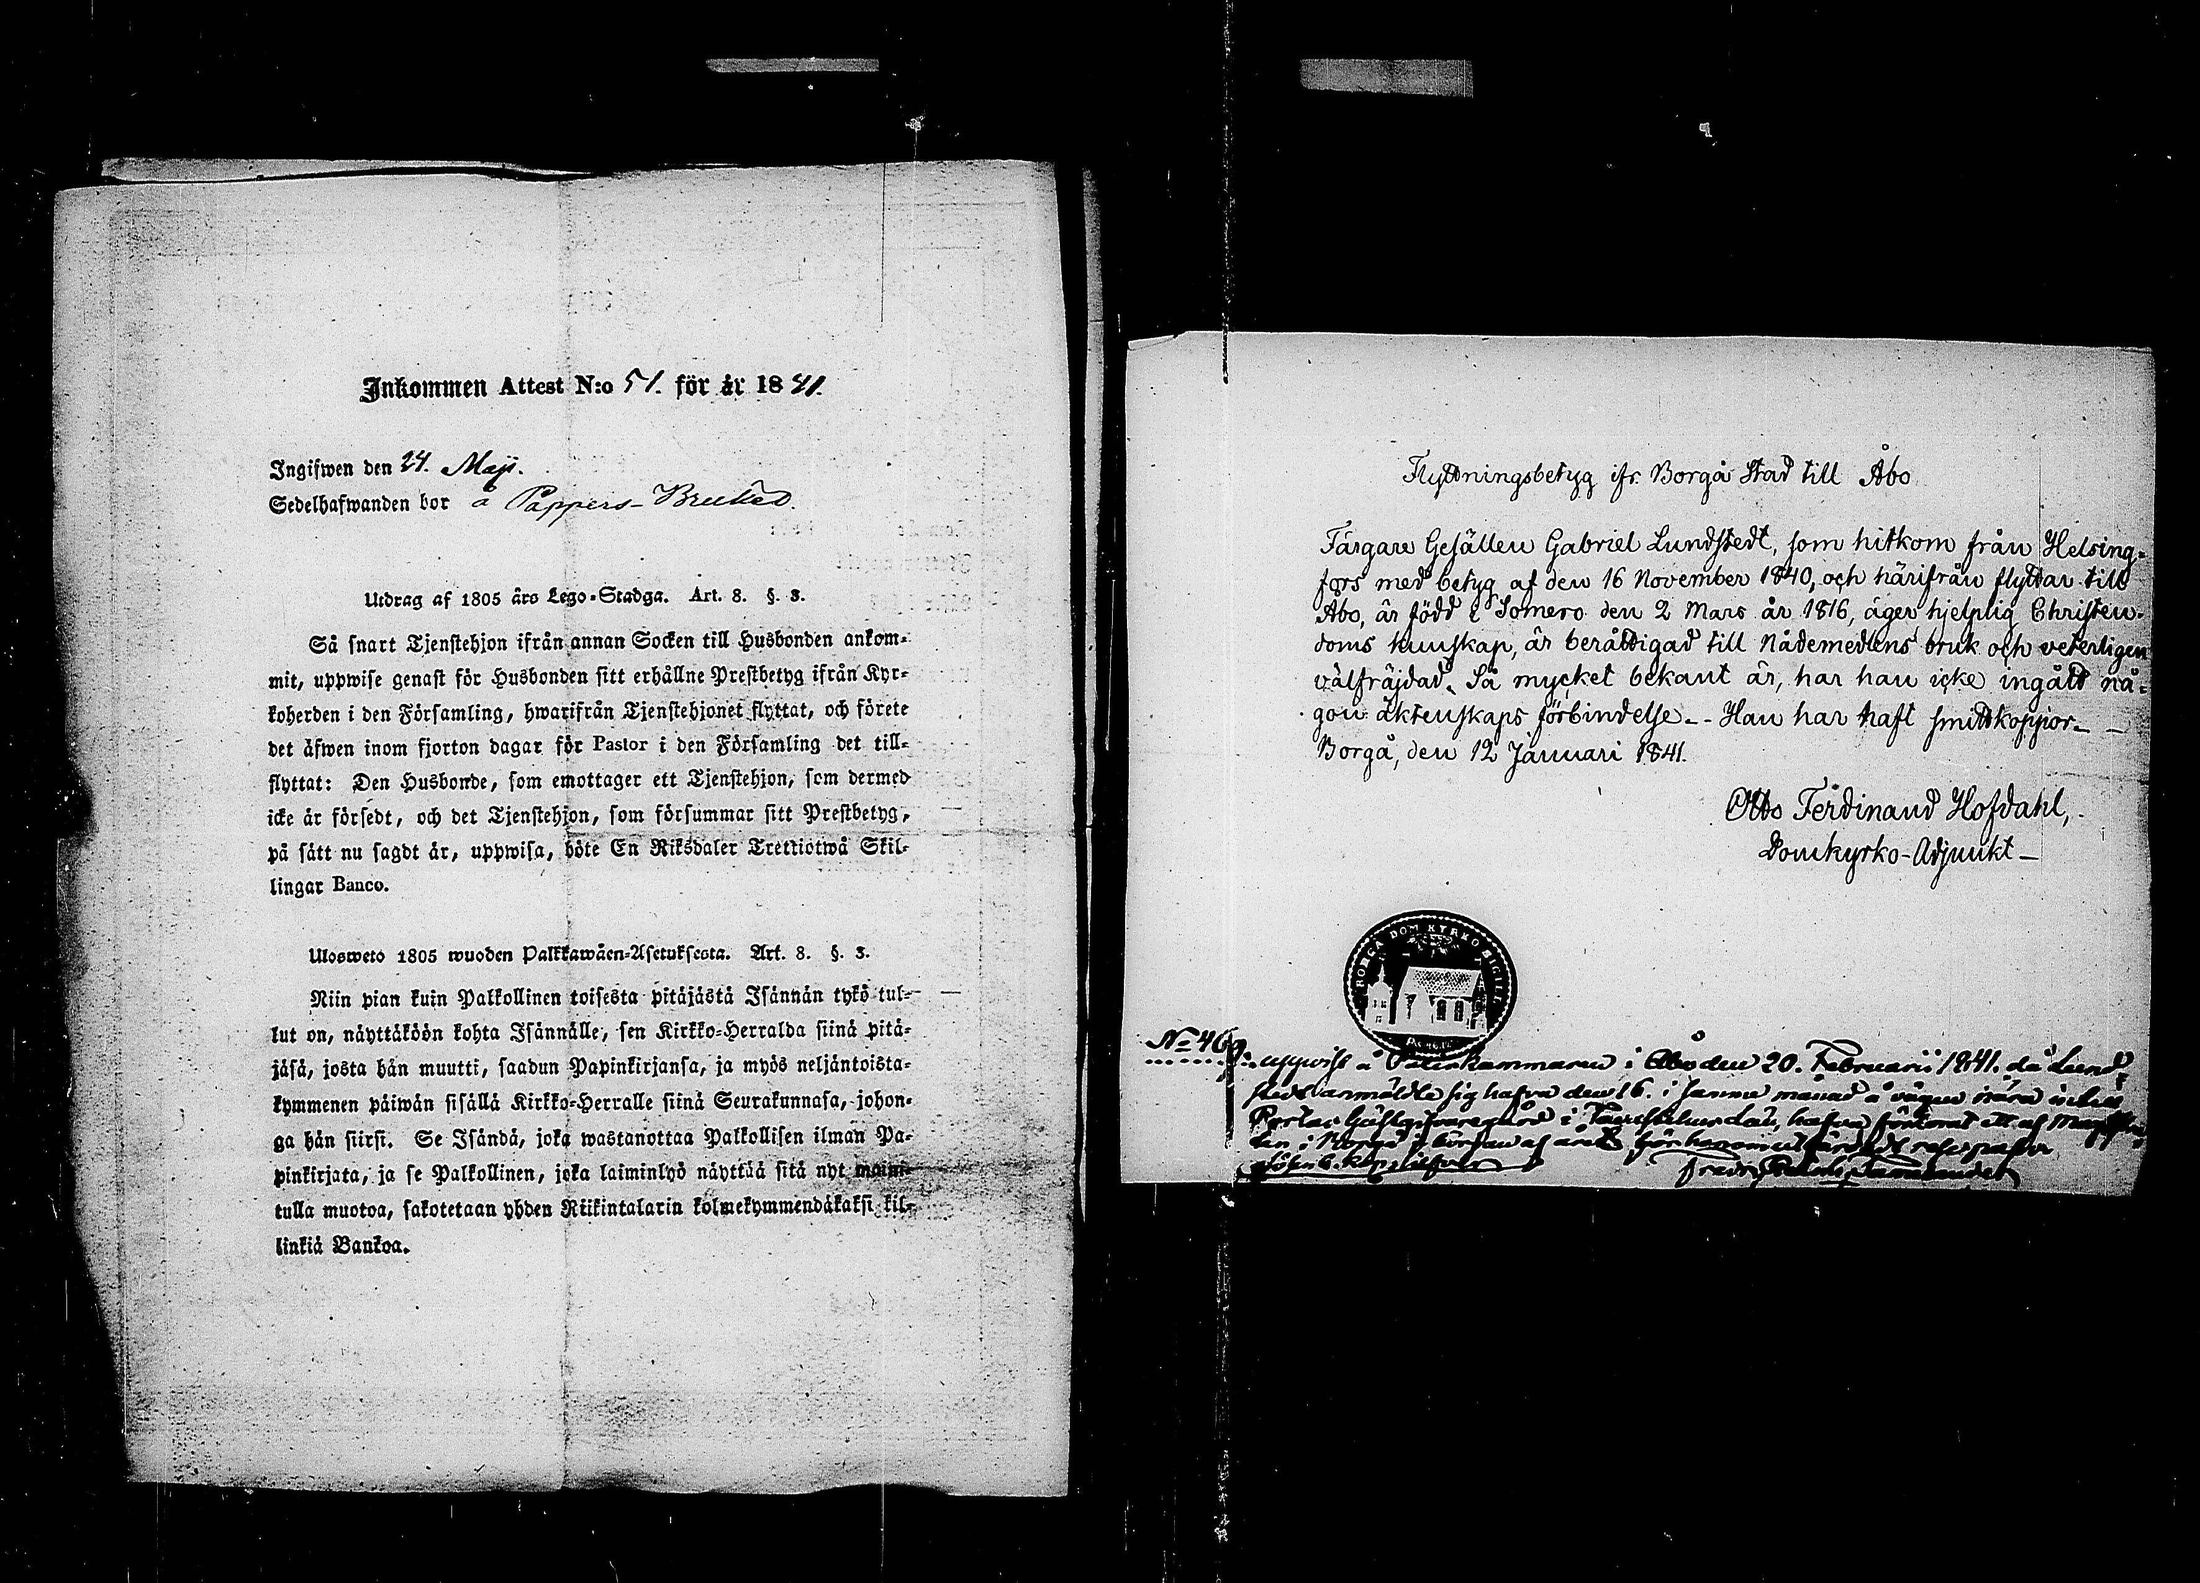 Inkommen Attest N:o 51. för år 1841.
Ingifwen den 24. Maji.
Sedelhafwanden bor å Pappers-Bruket.
Utdrag af 1805 års Lego-Stadga. Art. 8. §. 3.
Så snart Tjenstehjon ifrån annan Socken till Husbonden ankom-
mit, uppwise genast för Husbonden sitt erhållne Prestbetyg ifrån Kyr-
koherden i den Församling, hwarifrån Tjenstehjonet flyttat, och förete
det äfwen inom fjorton dagar för Pastor i den Församling det till-
flyttat: Den Husbonde, som emottager ett Tjenstehjon, som dermed
icke är försedt, och det Tjenstehjon, som försummar sitt Prestbetyg,
på sätt nu sagdt är, uppwisa, böte En Riksdaler Trettiotwå Skil-
lingar Banco.
Ulosweto 1805 wuoden Palkkawäen-Asetuksesta. Art. 8. §. 3.
Niin pian kuin Palkollinen toisesta pitäjästä Isännän tykö tul-
lut on, näyttäköön kohta Isännälle, sen Kirkko-Herralda siinä pitä-
jäsä, josta hän muutti, saadun Papinkirjansa, ja myös neljäntoista-
kymmenen päiwän sisällä Kirkko-Herralle siinä Seurakunnasa, johon-
ga hän siirsi. Se Isändä, joka wastanottaa Palkollisen ilman Pa-
pinkirjata, ja se Palkollinen, joka laiminlyö näyttää sitä nyt maini-
tulla muotoa, sakotetaan yhden Riikintalarin kolmekymmendäkaksi kil-
linkiä Bankoa.
Flyttningsbetyg ifr. Borgå Stad till Åbo
Färgare Gesällen Gabriel Lundstedt, som hitkom från Helsing-
fors med betyg af den 16 November 1840, och härifrån flyttar till
Åbo, är född i Somero den 2 Mars år 1816, äger hjelplig Christen-
doms kunskap, är berättigad till Nådemedlens bruk och veterligen
välfräjdad. Så mycket bekant är, har han icke ingått nå-
gon äktenskaps förbindelse. - Han har haft smittkoppor. -
Borgå, den 12 Januari 1841.
Otto Ferdinand Hofdahl,
Domkyrko-Adjunkt -
BORGÅ DOM KYRKO SIGILL
N= 469. uppvist å Poliskammaren i Åbo den 20. Februarii 1841. då Lund-
stedt anmälde sig hafva den 16. i samme månad å vägen nära
Gästgifvaregård i hafva förlorat ett af
i Borgå i början af året för honom utfärdadt